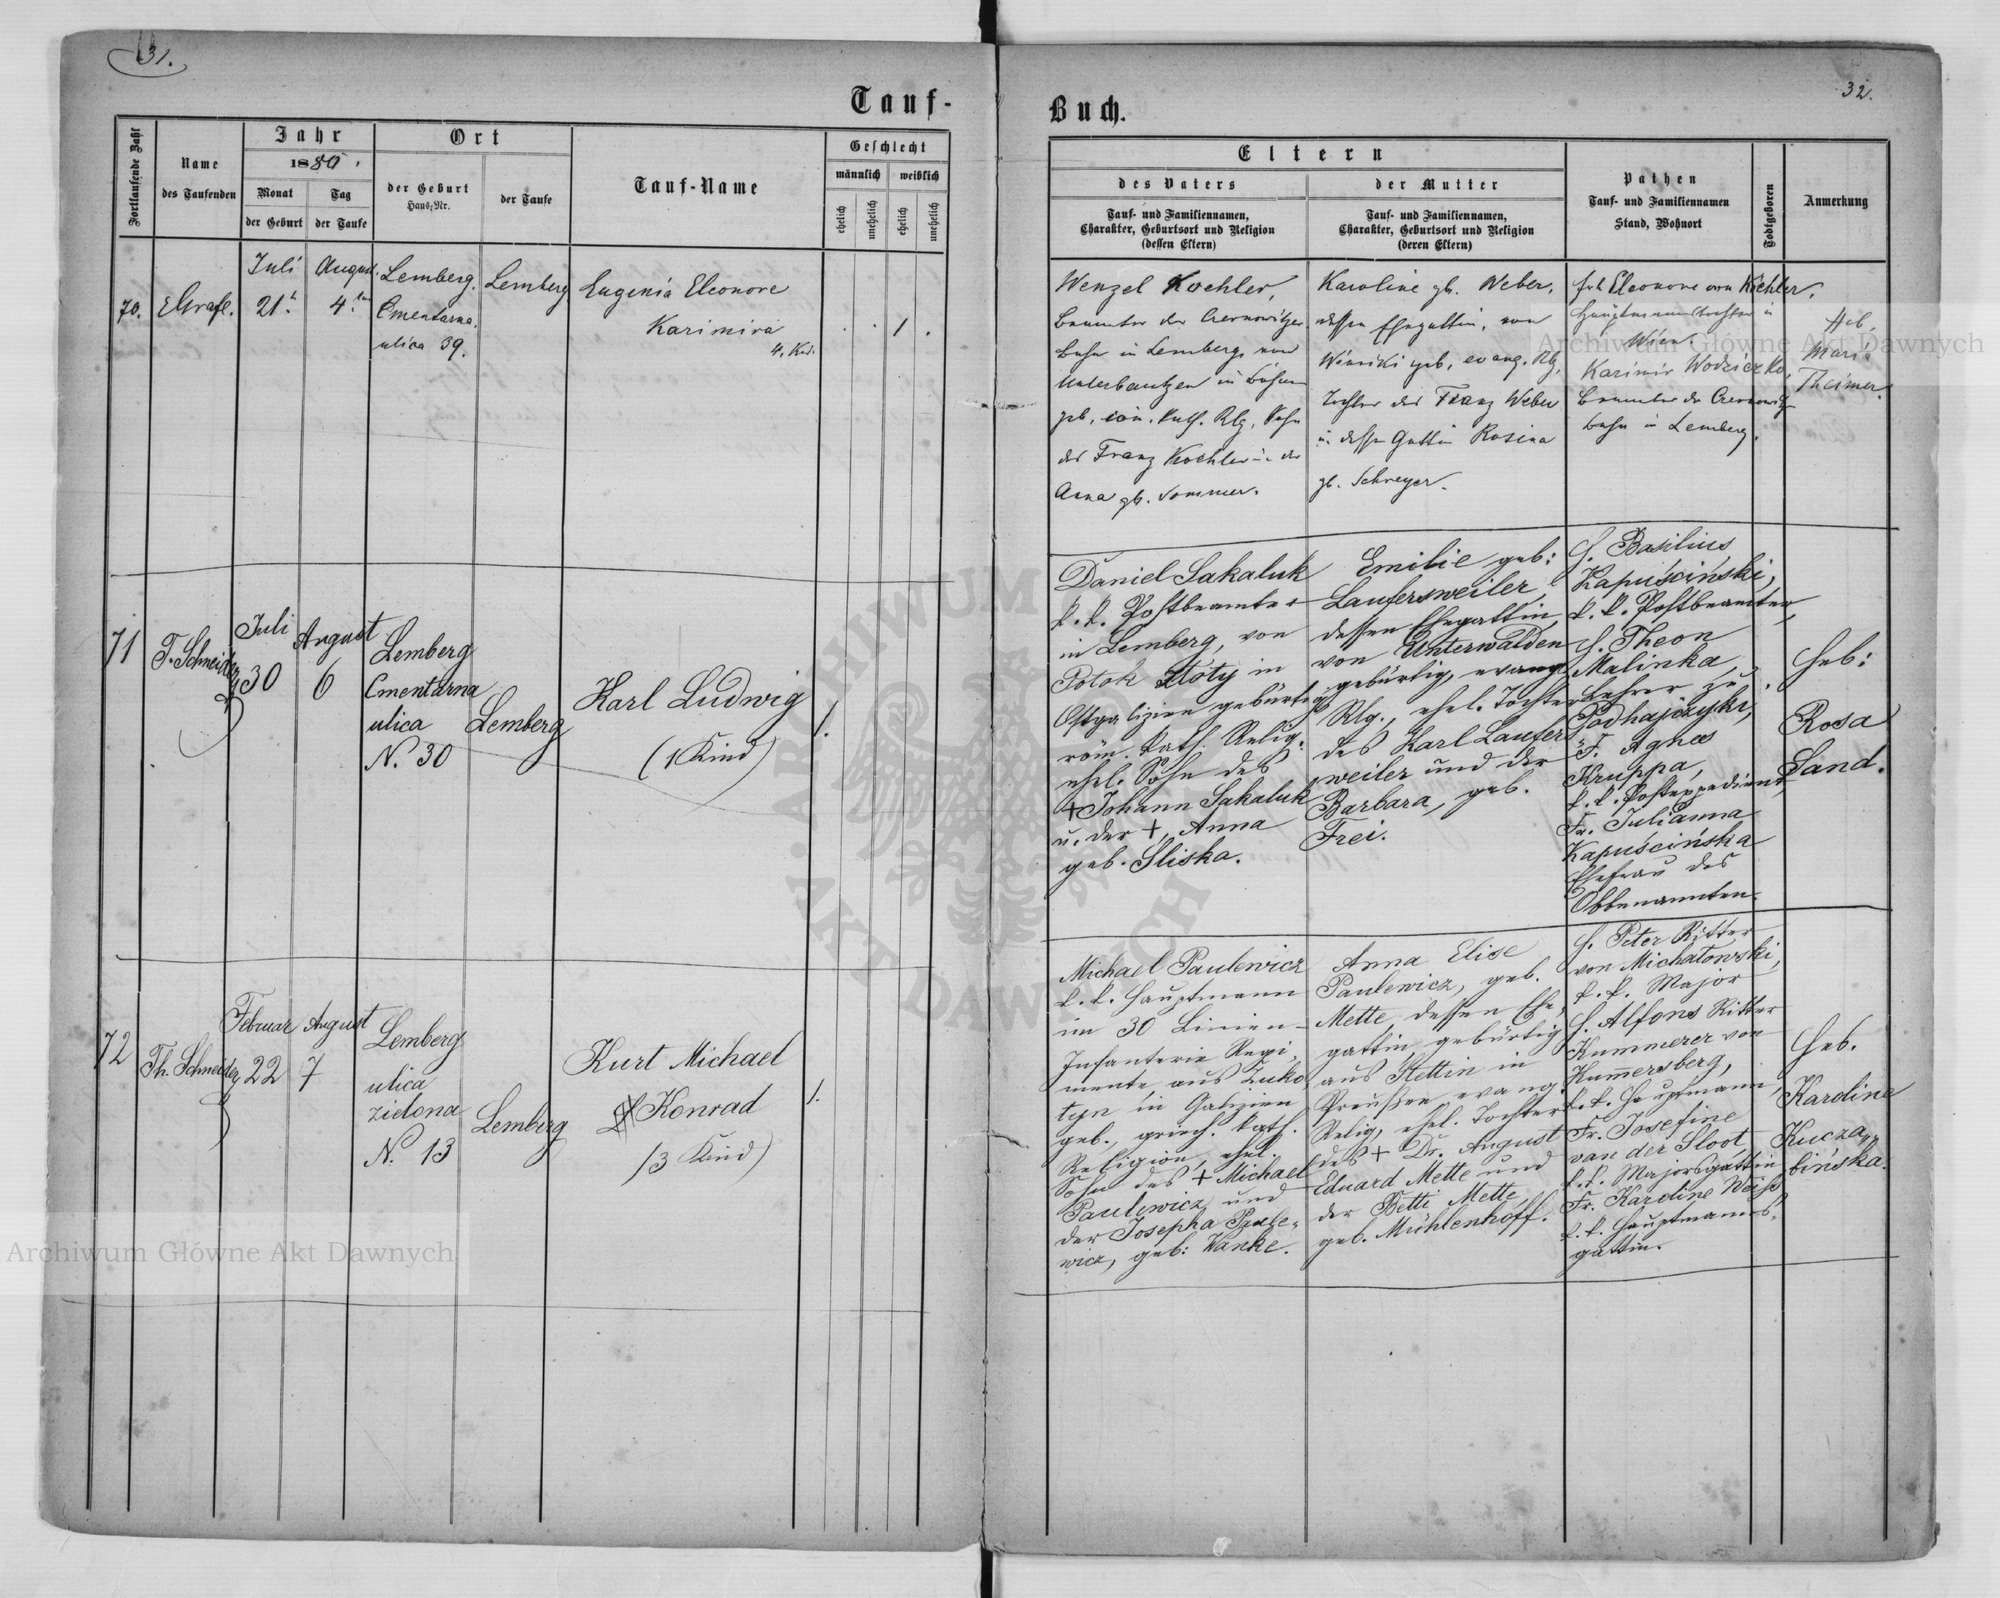 31.
Tauf-
Fortlaufende Zahl
Name
des Taufenden
Jahr
1880.
Monat
der Geburt
Tag
der Taufe
Ort
der Geburt
Haus-Nr.
der Taufe
Tauf-Name
Geschlecht
männlich
weiblich
ehelich
unehelich
ehelich
unehelich
70.
EGrafl.
Juli
21
August
4
Lemberg.
Cmentarna
ulica 39.
Lemberg
Eugenia Eleonore
Kazimira
4. Kind.
1
71
T. Schneider
Juli
30
August
6
Lemberg
Cmentarna
ulica
N. 30
Lemberg
Karl Ludwig
(1 Kind)
1.
72
Th. Schneider
Februar
22
August
7
Lemberg
ulica
zielona
N. 13
Lemberg
Kurt Michael
Konrad
(3 Kind)
1.
32.
Buch.
Eltern
des Vaters
Tauf- und Familiennamen,
Charakter, Geburtsort und Religion
(dessen Eltern)
der Mutter
Tauf- und Familiennamen,
Charakter, Geburtsort und Religion
(deren Eltern)
Pathen
Tauf- und Familiennamen
Stand, Wohnort
Todtgeboren
Anmerkung
Wenzel Koehler,
Beamter der Czernowitzer
bahn in Lemberg, von
in Böhmen
geb., röm. kath. Rlg., Sohn
des Franz Koehler u. der
Anna gb. Sommer.
Karoline gb. Weber,
dessen Ehegattin, von
Winniki geb., evang. Rlg.,
Tochter des Franz Weber
u. dessen Gattin Rosina
gb. Schreyer.
Frl. Eleonore von Koehler,
Hauptmannstochter in
Wien.
Kazimir Wodziczko,
Beamter der Czernowitz
bahn in Lemberg.
Heb.
Maria
Theimer.
Daniel Sakaluk
k. k. Postbeamter
in Lemberg, von
Potok Złoty in
Ostgalizien gebürtig
röm. kath. Relig.
ehel. Sohn des
+ Johann Sakaluk
u. der +, Anna
geb. Sliska.
Emilie geb:
Laufersweiler,
dessen Ehegattin,
von Unterwalden
gebürtig, evang.
Rlg., ehel. Tochter
des Karl Laufers
weiler und der
Barbara, geb.
Frei.
H. Basilius
Kapuściński,
k. k. Postbeamter,
H. Theon
Malinka,
Lehrer zu
Podhajczyki,
F. Agnes
Kruppa,
k. k. Postexpedient,
Fr. Julianna
Kapuścińska
Ehefrau des
Obbenannten.
Heb:
Rosa
Sand.
Michael Paulewicz
k. k. Hauptmann
im 30 Linien-
Infanterie Regi-
mente aus Zuko
tyn in Galizien
geb., griech. kath.
Religion, ehel.
Sohn des + Michael
Paulewicz und
der Josepha Paule-
wicz, geb: Wanke.
Anna Elise
Paulewicz, geb.
Mette, dessen Ehe-
gattin, gebürtig
aus Stettin in
Preußen evang.
Relig., ehel. Tochter
des + Dr. August
Eduard Mette und
der Betti Mette,
geb. Mühlenhoff.
H. Peter Ritter
von Michałowski,
k. k. Major
H. Alfons Ritter
Kummerer von
Kummersberg,
k. k. Hauptmann,
Fr. Josefine
van der Sloot,
k. k. Majorsgattin
Fr. Karoline Weiß
k. k. Hauptmanns-
gattin.
Heb.
Karoline
Kucza-
bińska.
Archiwum Główne Akt Dawnych
Archiwum Główne Akt Dawnych